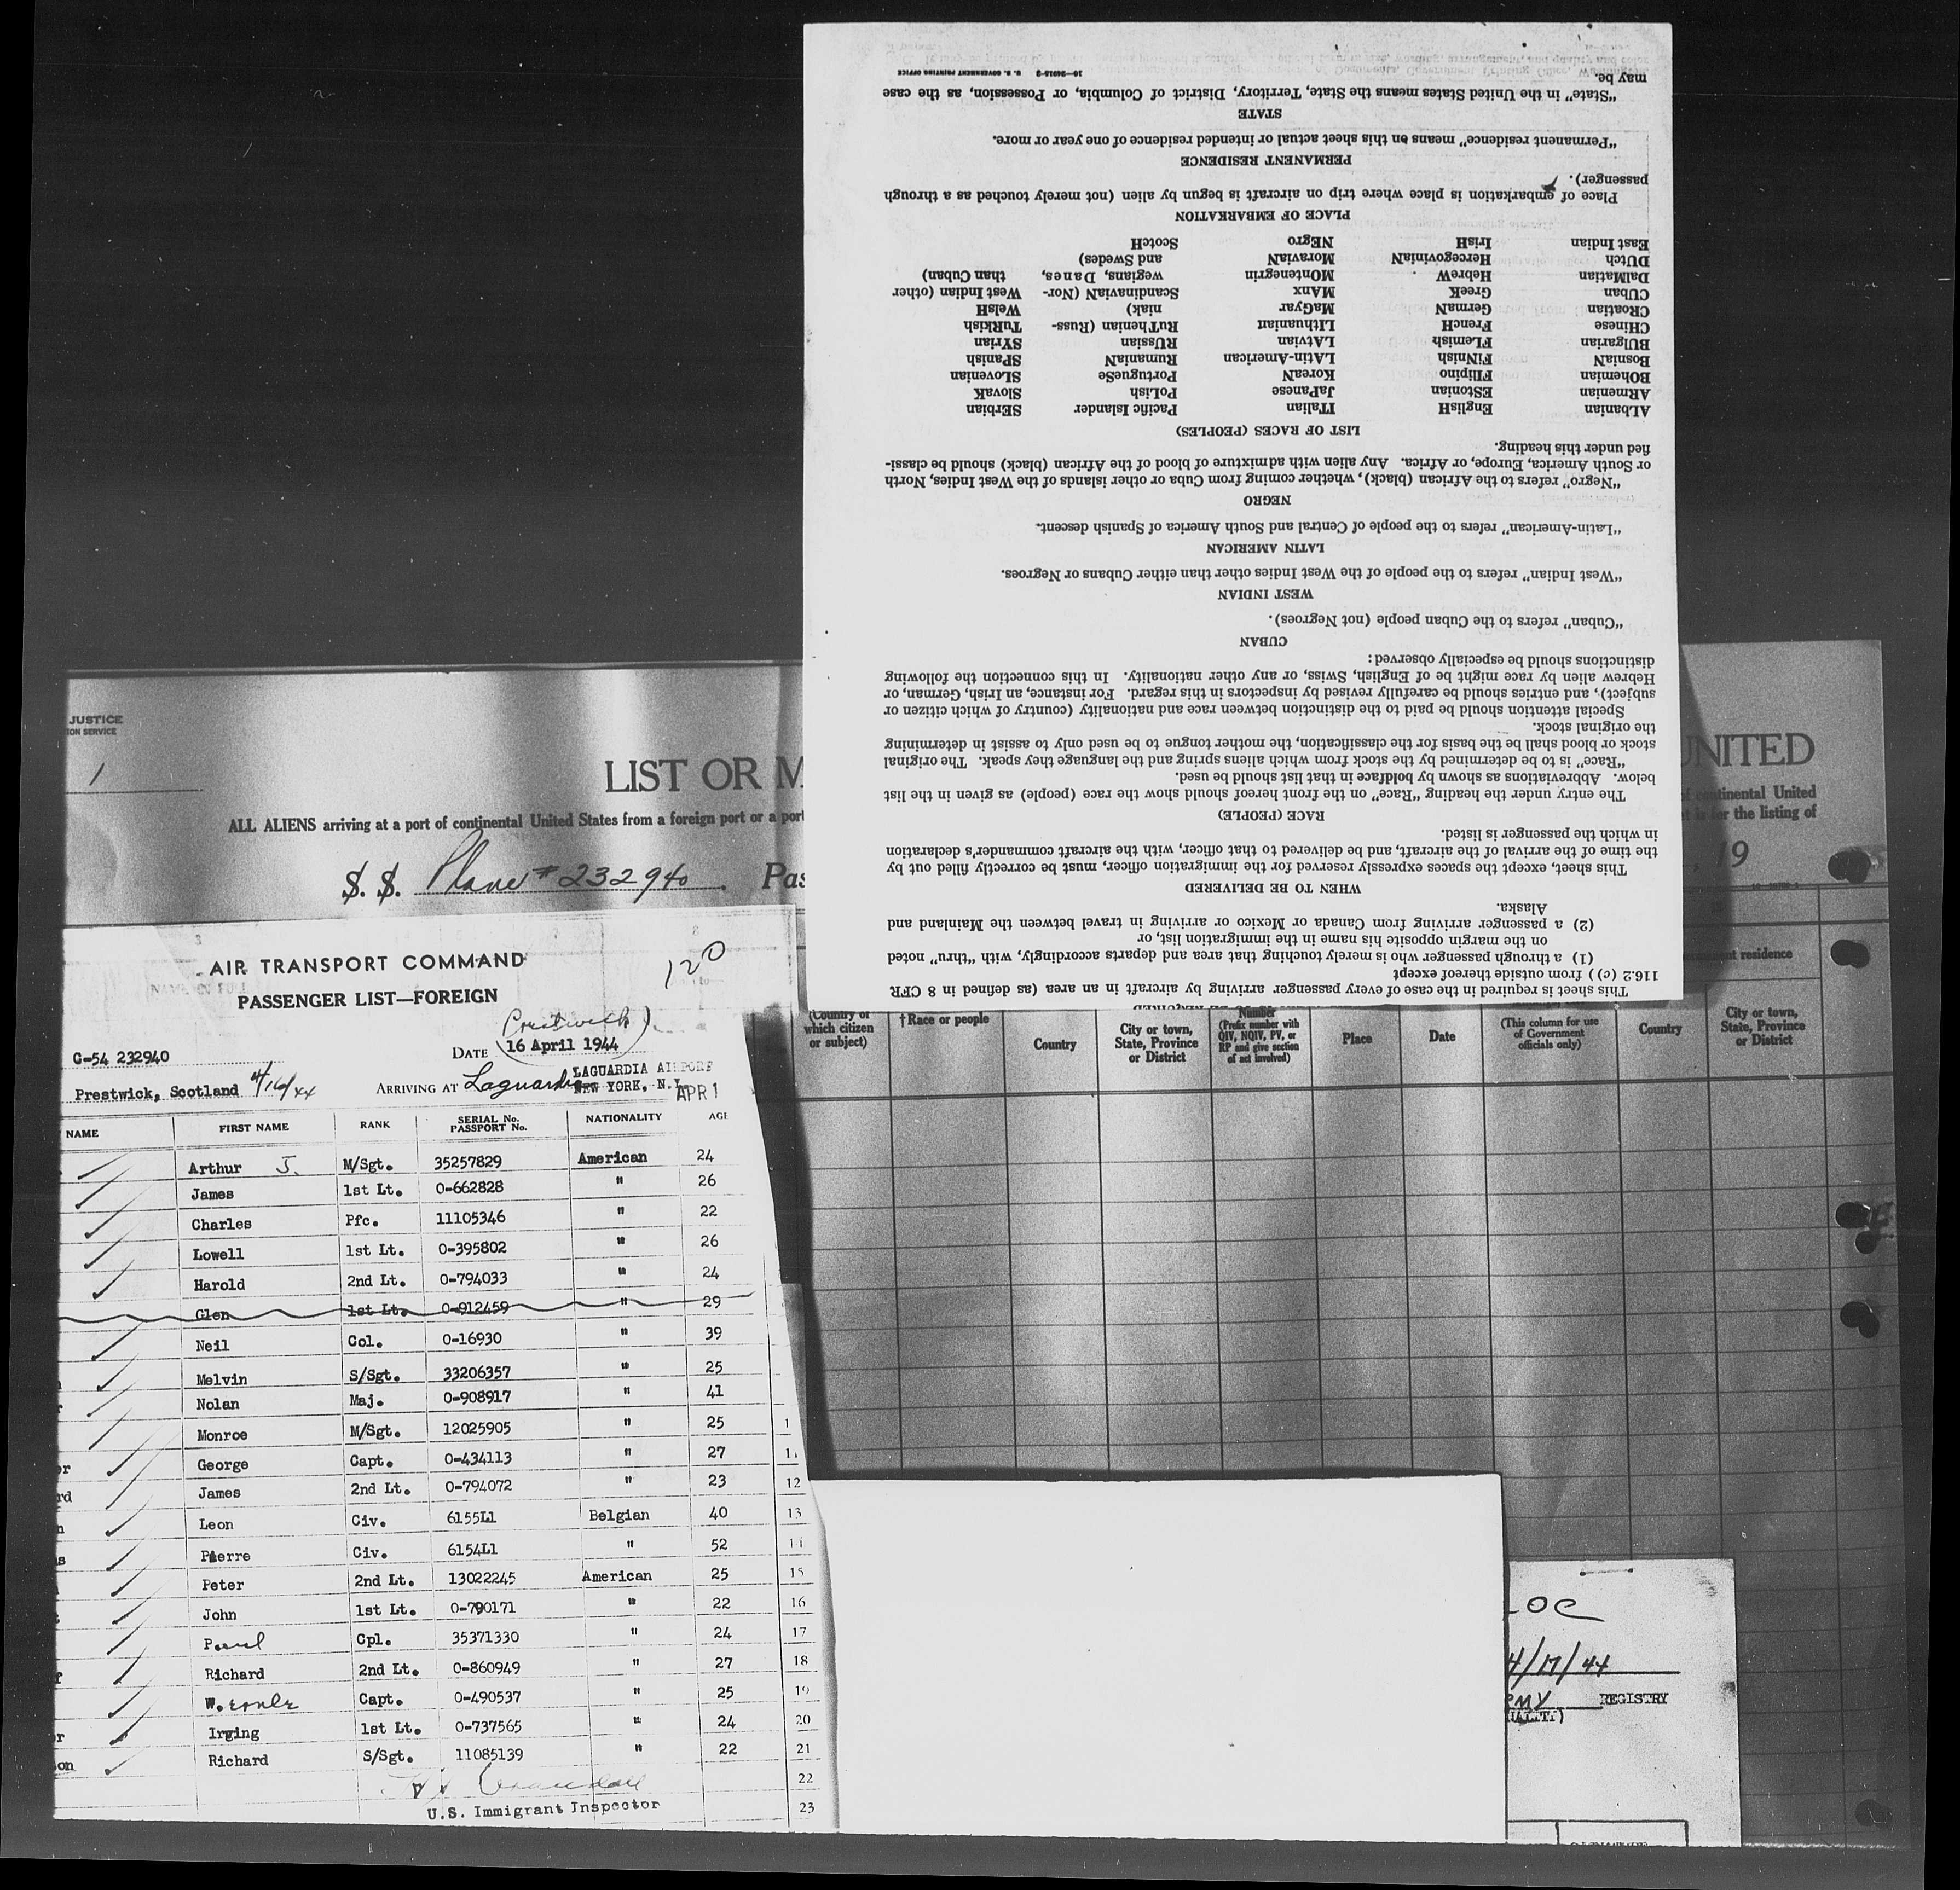 JUSTICE
ION SERVICE
1
LIST OR M
UNITED
ALL ALIENS arriving at a port of continental United States from a foreign port or a port
continental United
is for the listing of
S. S. Plane # 232940 Pas
, 19
AIR TRANSPORT COMMAND
PASSENGER LIST—FOREIGN
120
(Prestwick)
G-54 232940
DATE 16 April 1944
Prestwick, Scotland 4/16/44
ARRIVING AT Laguardia
LAGUARDIA AIRPORT
NEW YORK, N.Y.
APR 1
NAME FIRST NAME RANK SERIAL No. PASSPORT No. NATIONALITY AGE
Arthur J. M/Sgt. 35257829 American 24
James 1st Lt. 0-662828 " 26
Charles Pfc. 11105346 " 22
Lowell 1st Lt. 0-395802 " 26
Harold 2nd Lt. 0-794033 " 24
Glen 1st Lt. 0-912459 " 29
Neil Col. 0-16930 " 39
Melvin S/Sgt. 33206357 " 25
Nolan Maj. 0-908917 " 41
Monroe M/Sgt. 12025905 " 25 1
er George Capt. 0-434113 " 27 11
rd James 2nd Lt. 0-794072 " 23 12
n Leon Civ. 6155L1 Belgian 40 13
s Pierre Civ. 6154L1 " 52 14
Peter 2nd Lt. 13022245 American 25 15
John 1st Lt. 0-790171 " 22 16
Paul Cpl. 35371330 " 24 17
f Richard 2nd Lt. 0-860949 " 27 18
Capt. 0-490537 " 25 19
r Irging 1st Lt. 0-737565 " 24 20
on Richard S/Sgt. 11085139 " 22 21
22
U.S. Immigrant Inspector 23
This sheet is required in the case of every passenger arriving by aircraft in an area (as defined in 8 CFR
116.2 (c)) from outside thereof except
(1) a through passenger who is merely touching that area and departs accordingly, with "thru" noted
on the margin opposite his name in the immigration list, or
(2) a passenger arriving from Canada or Mexico or arriving in travel between the Mainland and
Alaska.
WHEN TO BE DELIVERED
This sheet, except the spaces expressly reserved for the immigration officer, must be correctly filled out by
the time of the arrival of the aircraft, and be delivered to that officer, with the aircraft commander's declaration
in which the passenger is listed.
RACE (PEOPLE)
The entry under the heading "Race" on the front hereof should show the race (people) as given in the list
below. Abbreviations as shown by boldface in that list should be used.
"Race" is to be determined by the stock from which aliens spring and the language they speak. The original
stock or blood shall be the basis for the classification, the mother tongue to be used only to assist in determining
the original stock.
Special attention should be paid to the distinction between race and nationality (country of which citizen or
subject), and entries should be carefully revised by inspectors in this regard. For instance, an Irish, German, or
Hebrew alien by race might be of English, Swiss, or any other nationality. In this connection the following
distinctions should be especially observed:
CUBAN
"Cuban" refers to the Cuban people (not Negroes).
WEST INDIAN
"West Indian" refers to the people of the West Indies other than either Cubans or Negroes.
LATIN AMERICAN
"Latin-American" refers to the people of Central and South America of Spanish descent.
NEGRO
"Negro" refers to the African (black), whether coming from Cuba or other islands of the West Indies, North
or South America, Europe, or Africa. Any alien with admixture of blood of the African (black) should be classi-
fied under this heading.
LIST OF RACES (PEOPLES)
ALbanian EnglisH ITalian Pacific Islander SErbian
ARmenian EStonian JaPanese PoLish SlovaK
BOhemian FIlipino KoreaN PortugueSe SLovenian
BosniaN FiNnish LAtin-American RumaniaN SPanish
BUlgarian FLemish LAtvian RUssian SYrian
CHinese FrencH LIthuanian RuThenian (Russ- TuRkish
CRoatian GermaN MaGyar niak) WelsH
CUban GreeK MAnx ScandinaviaN (Nor- West Indian (other
DalMatian HebreW MOntenegrin wegians, Danes, than Cuban)
DUtch HercegoviniaN MoraviaN and Swedes)
East Indian IrisH NEgro ScotcH
PLACE OF EMBARKATION
Place of embarkation is place where trip on aircraft is begun by alien (not merely touched as a through
passenger).
PERMANENT RESIDENCE
"Permanent residence" means on this sheet actual or intended residence of one year or more.
STATE
"State" in the United States means the State, Territory, District of Columbia, or Possession, as the case
may be.
16—34915-2 U. S. GOVERNMENT PRINTING OFFICE
residence
(Country of which citizen or subject)
†Race or people
Country
City or town, State, Province or District
Number (Prefix number with QIV, NQIV, PV, or RP and give section of act involved)
Place
Date
(This column for use of Government officials only)
Country
City or town, State, Province or District
4/17/44
REGISTRY